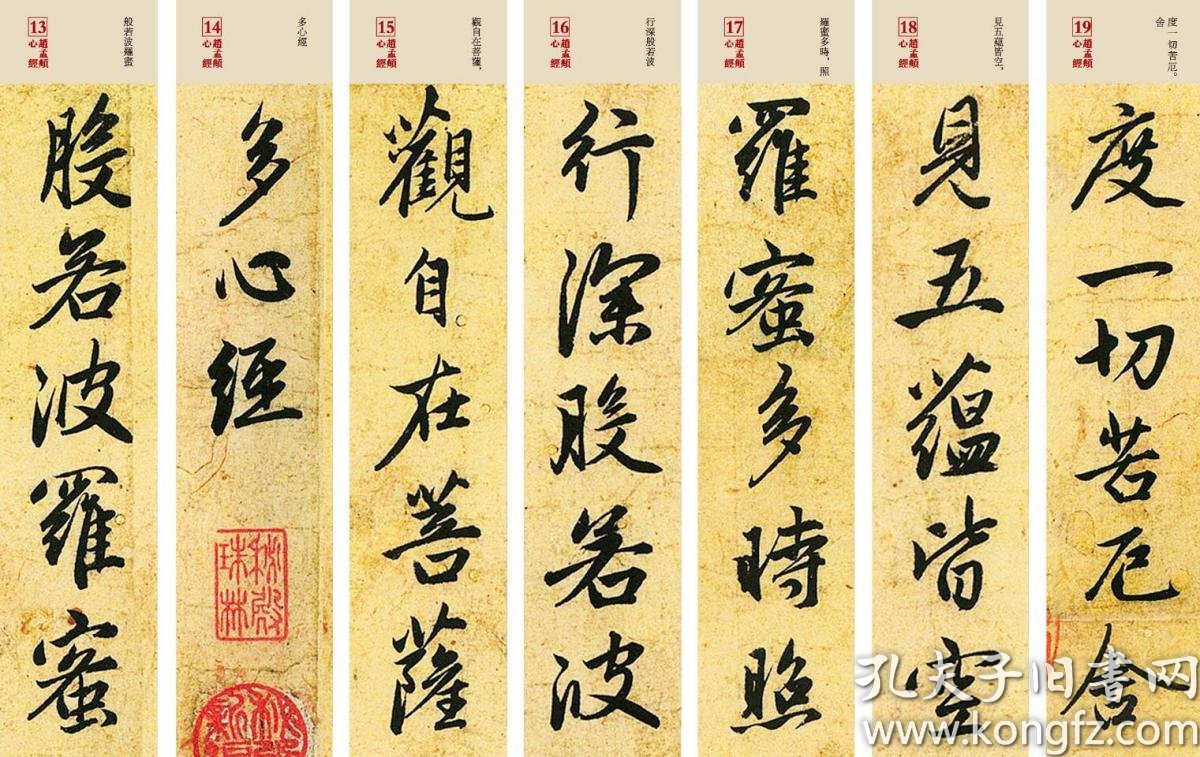 13
趙孟頫
心經
般若波羅蜜
般若波羅蜜
14
趙孟頫
心經
多心經
多心經
秋壑
珠林
15
趙孟頫
心經
觀自在菩薩，
觀自在菩薩
16
趙孟頫
心經
行深般若波
行深般若波
17
趙孟頫
心經
羅蜜多時，照
羅蜜多時照
18
趙孟頫
心經
見五蘊皆空，
見五蘊皆空
19
趙孟頫
心經
度一切苦厄。
舍
度一切苦厄舍
孔夫子旧書网
www.kongfz.com